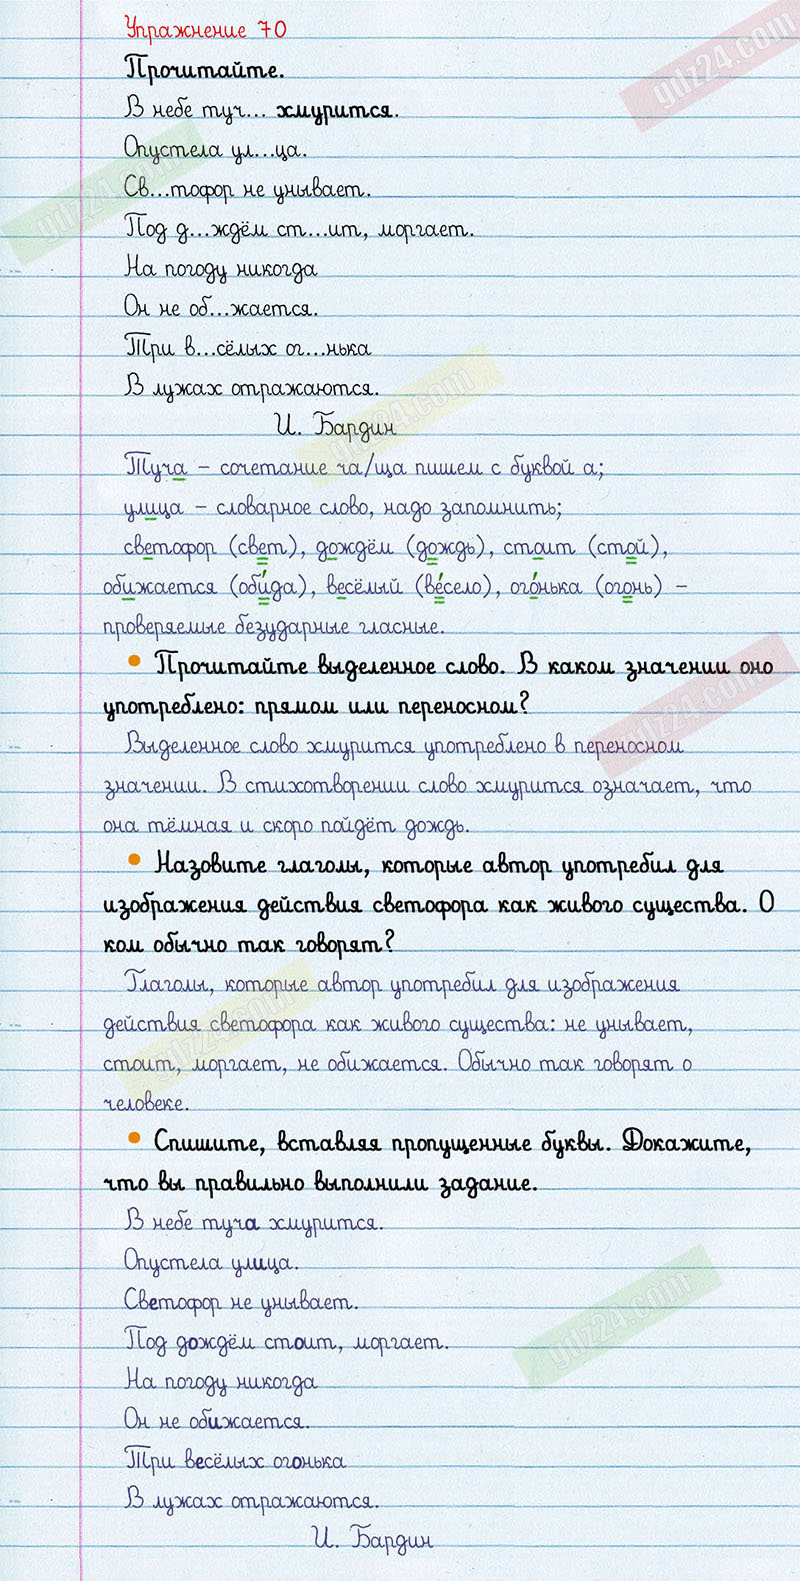 Упражнение 70
Прочитайте.
В небе туч... хмурится.
Опустела ул...ца.
Св...тофор не унывает.
Под д...ждём ст...ит, моргает.
На погоду никогда
Он не об...жается.
Три в...сёлых ог...нька
В лужах отражаются.
И. Бардин
Туча – сочетание ча/ща пишем с буквой а;
улица – словарное слово, надо запомнить;
светофор (свет), дождём (дождь), стоит (стой),
обижается (оби́да), весёлый (ве́село), ого́нька (огонь) –
проверяемые безударные гласные.
• Прочитайте выделенное слово. В каком значении оно
употреблено: прямом или переносном?
Выделенное слово хмурится употреблено в переносном
значении. В стихотворении слово хмурится означает, что
она тёмная и скоро пойдёт дождь.
• Назовите глаголы, которые автор употребил для
изображения действия светофора как живого существа. О
ком обычно так говорят?
Глаголы, которые автор употребил для изображения
действия светофора как живого существа: не унывает,
стоит, моргает, не обижается. Обычно так говорят о
человеке.
• Спишите, вставляя пропущенные буквы. Докажите,
что вы правильно выполнили задание.
В небе туча хмурится.
Опустела улица.
Светофор не унывает.
Под дождём стоит, моргает.
На погоду никогда
Он не обижается.
Три весёлых огонька
В лужах отражаются.
И. Бардин
gdz24.com
gdz24.com
gdz24.com
gdz24.com
gdz24.com
gdz24.com